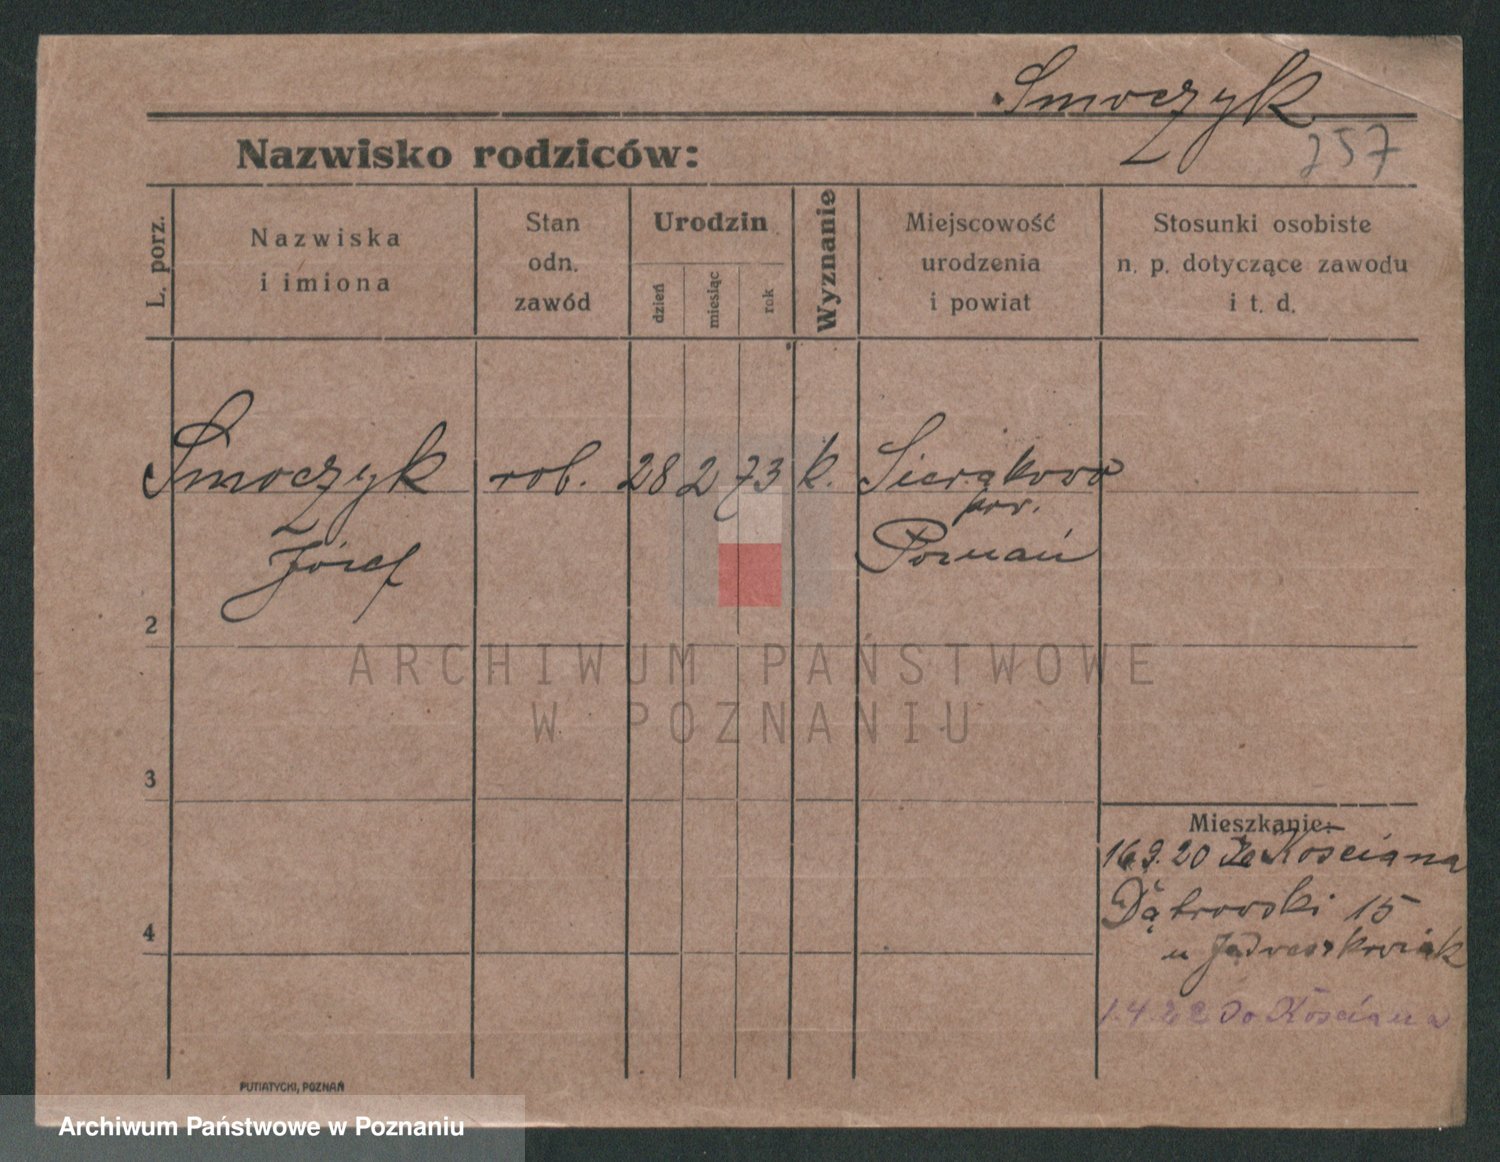 Smoczyk
257
Nazwisko rodziców:
L. porz.
Nazwiska
i imiona
Stan
odn.
zawód
Urodzin
dzień
miesiąc
rok
Wyznanie
Miejscowość
urodzenia
i powiat
Stosunki osobiste
n. p. dotyczące zawodu
i t. d.
Smoczyk rob. 28 2 73 k. Sierakowo
pow.
Józef Poznań
2
ARCHIWUM PAŃSTWOWE
W POZNANIU
3
Mieszkanie:
16.9.20 Ze Kościana
Dąbrowski 15
4
u
1.4.22 do Kościana
PUTIATYCKI, POZNAŃ
Archiwum Państwowe w Poznaniu